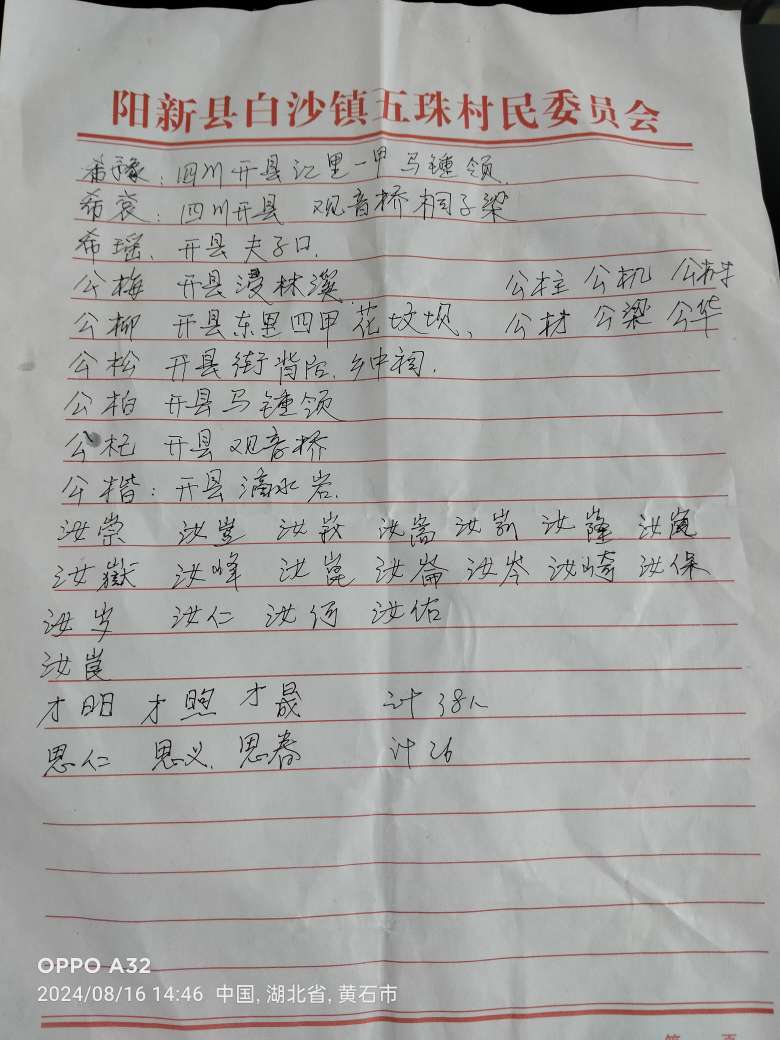 阳新县白沙镇五珠村民委员会
希豫：四川开县江里一甲马锺领.
希衮：四川开县 观音桥桐子梁
希瑶. 开县夫子口.
公梅 开县漫林溪 公柱 公机 公树
公柳 开县东里四甲花坟坝、公材 公梁 公华
公松 开县街背后.乡中祠.
公柏 开县马锺领
公杞 开县观音桥
公楷：开县滴水岩.
汝崇 汝岦 汝嵚 汝嵩 汝嶄 汝嶐 汝嵐
汝嶽 汝峰 汝崑 汝崙 汝岑 汝崎 汝保
汝岁 汝仁 汝何 汝佑
汝崀
才明 才煦 才晟 计38人
思仁 思义. 思春 计26
OPPO A32
2024/08/16 14:46 中国, 湖北省, 黄石市
第 页